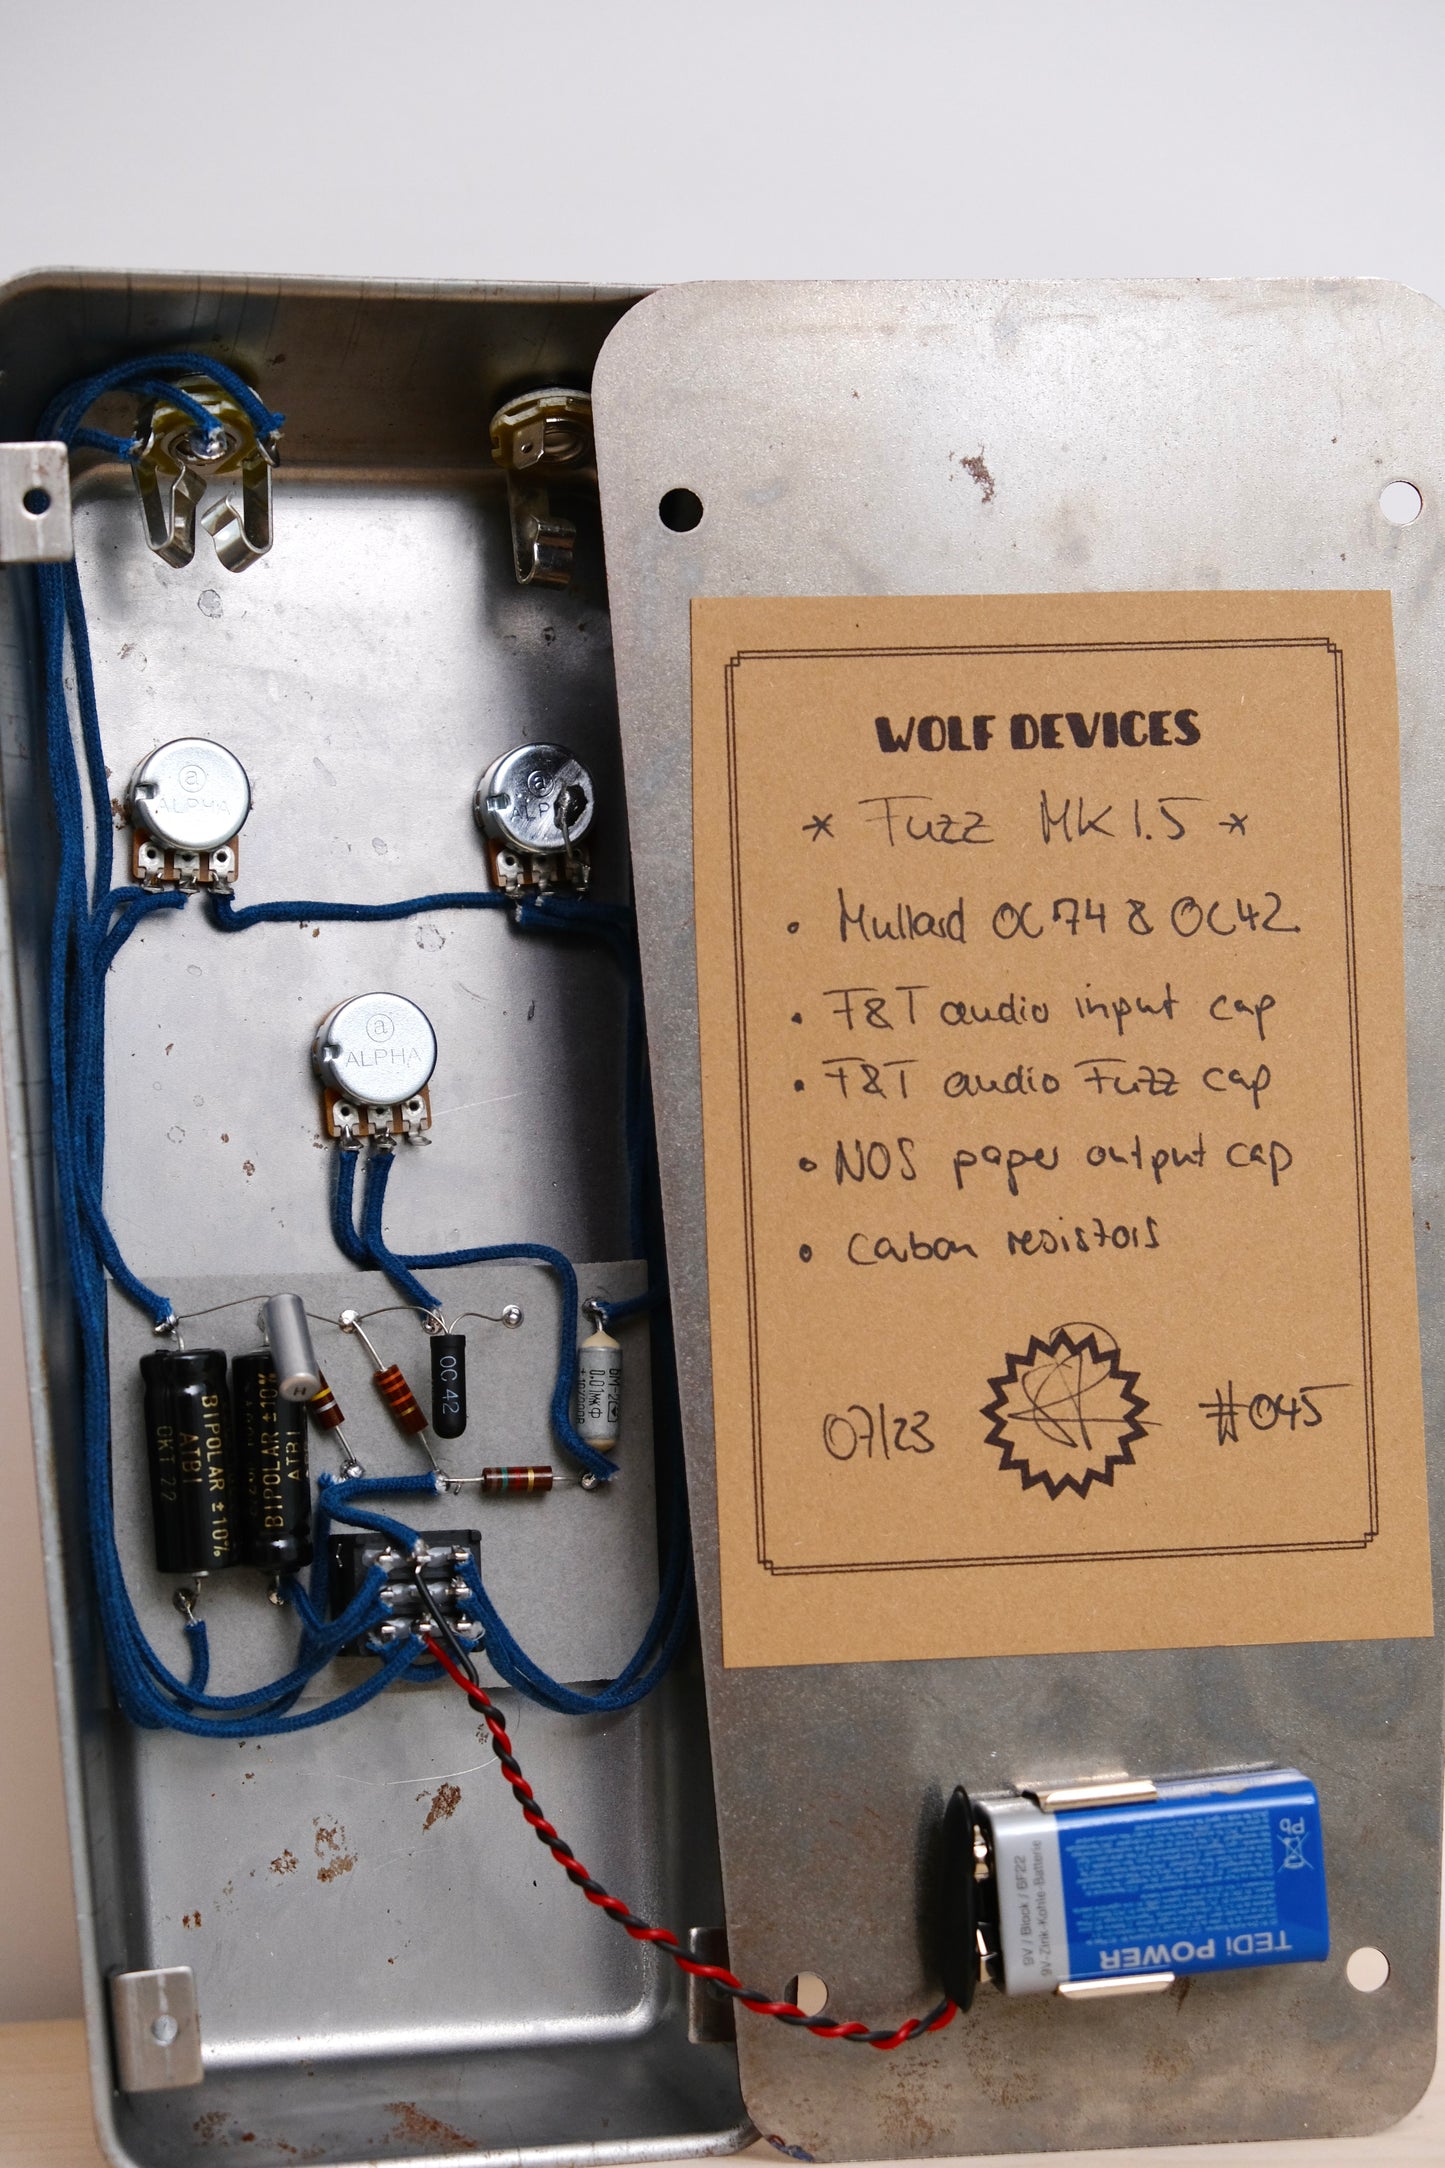 WOLF DEVICES
* Fuzz MK 1.5 *
• Mullard OC74 & OC42
• F&T audio input cap
• F&T audio Fuzz cap
• NOS paper output cap
• Carbon resistors
07/23
#045
a
ALPHA
a
ALP
a
ALPHA
OC 42
0.01мкФ
BIPOLAR ±10%
ATBI
OKT 22
BIPOLAR ±10%
ATBI
H
9V / Block / 6F22
9V-Zink-Kohle-Batterie
TEDi POWER